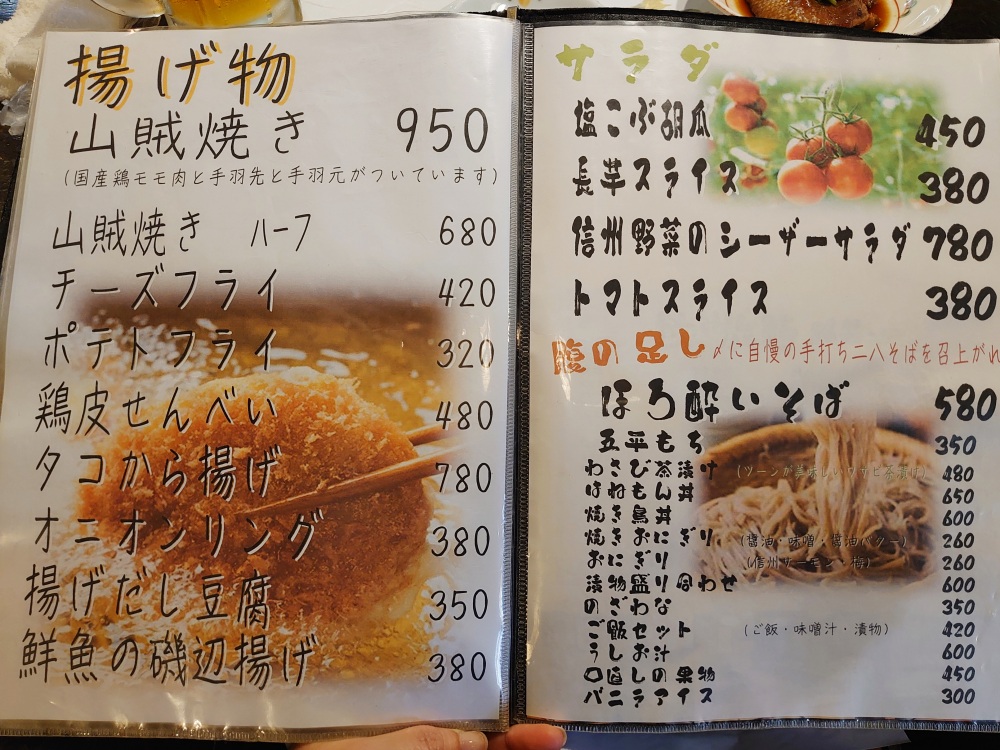 揚げ物
山賊焼き 950
(国産鶏モモ肉と手羽先と手羽元がついています)
山賊焼き ハーフ 680
チーズフライ 420
ポテトフライ 320
鶏皮せんべい 480
タコから揚げ 780
オニオンリング 380
揚げだし豆腐 350
鮮魚の磯辺揚げ 380
サラダ
塩こぶ胡瓜 450
長芋スライス 380
信州野菜のシーザーサラダ 780
トマトスライス 380
腹の足し 〆に自慢の手打ち二八そばを召上がれ
ほろ酔いそば 580
五平もち 350
わさび茶漬け (ツーンが美味しいワサビ茶漬け) 480
はねもん丼 650
焼き鳥丼 600
焼きおにぎり (醤油・味噌・醤油バター) 260
おにぎり (信州サーモン・梅) 260
漬物盛り合わせ 600
のざわな 350
ご飯セット (ご飯・味噌汁・漬物) 420
うしお汁 600
口直しの果物 450
バニラアイス 300